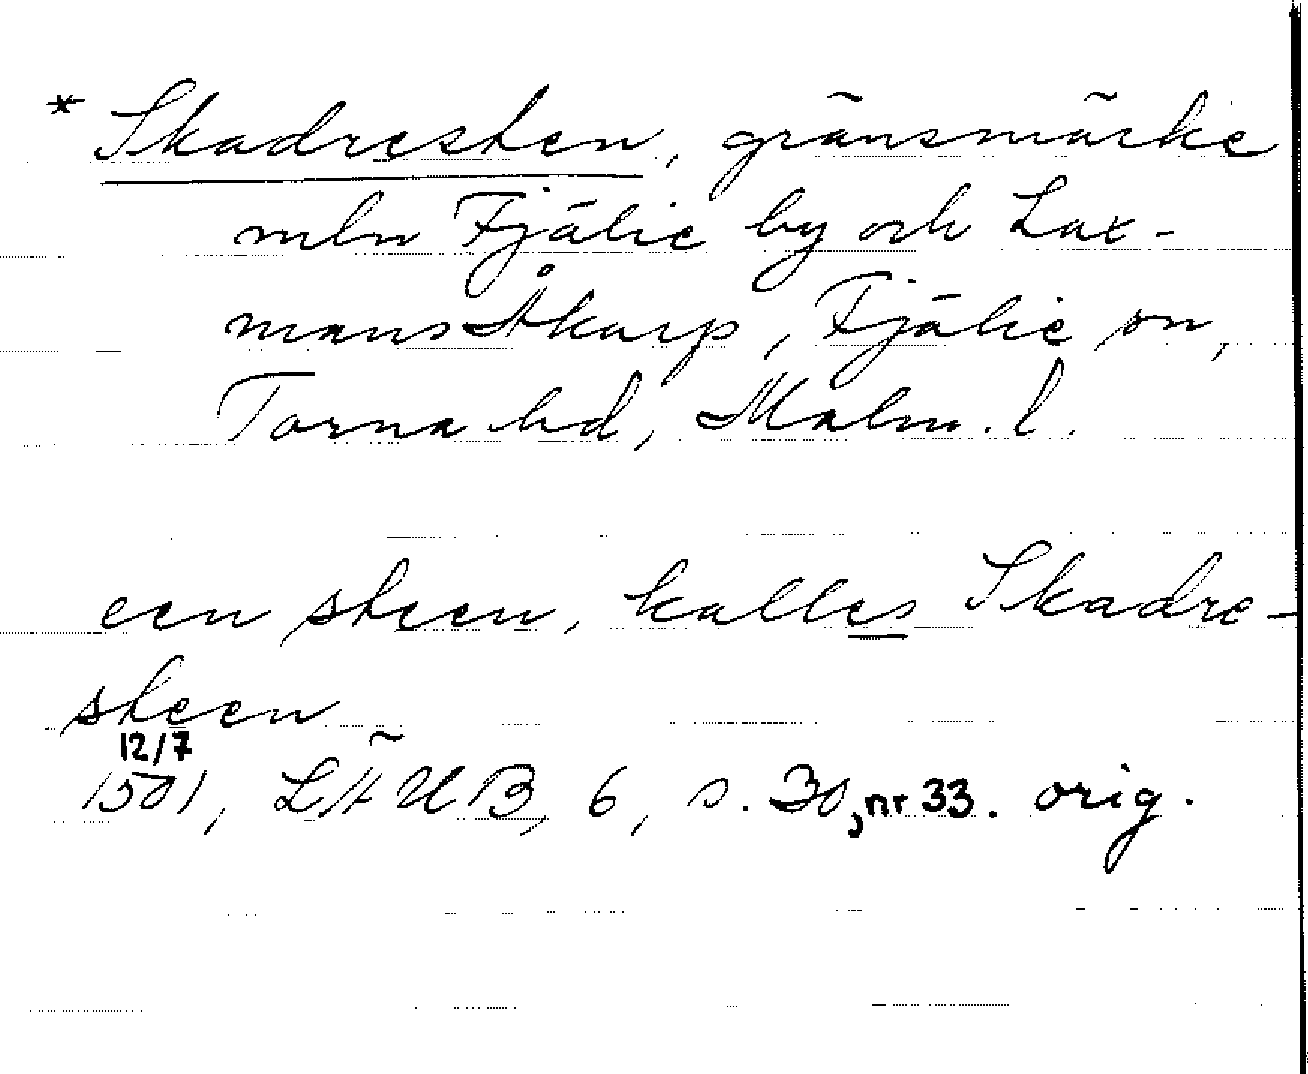 * Skadresten, gränsmärke
mln Fjälie by och Lax-
mans Åkarp, Fjälie sn,
Torna hd, Malm. l.
een steen, kalles Skadre-
steen
12/7
1501, LÄUB, 6, s. 30, nr 33. orig.